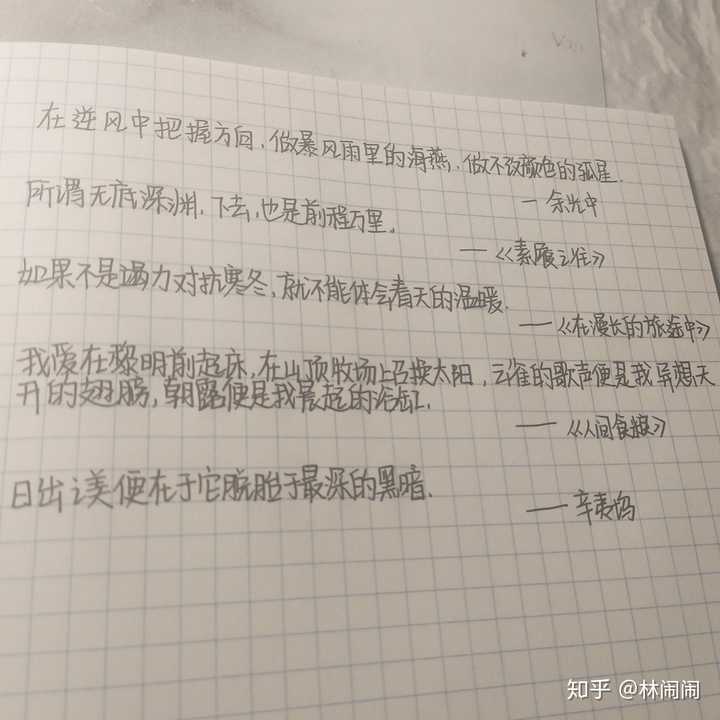 在逆风中把握方向，做暴风雨里的海燕，做不改颜色的孤星.
— 余光中
所谓无底深渊，下去，也是前程万里。
—《素履之往》
如果不是竭力对抗寒冬，就不能体会春天的温暖.
—《在漫长的旅途中》
我爱在黎明前起床，在山顶牧场上召换太阳，云雀的歌声便是我异想天
开的翅膀，朝露便是我晨起的浴缸.
—《人间食粮》
日出之美便在于它脱胎于最深的黑暗.
— 辛夷坞
知乎 @林闹闹